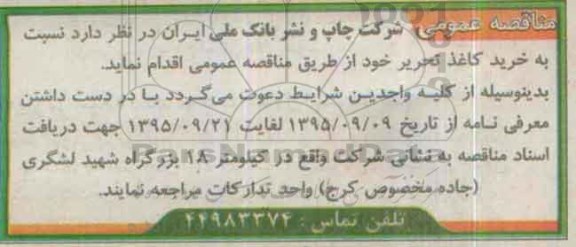 مناقصه عمومی شرکت چاپ و نشر بانک ملی ایران در نظر دارد نسبت
به خرید کاغذ تحریر خود از طریق مناقصه عمومی اقدام نماید.
بدینوسیله از کلیه واجدین شرایط دعوت می‌گردد با در دست داشتن
معرفی نامه از تاریخ ۱۳۹۵/۰۹/۰۹ لغایت ۱۳۹۵/۰۹/۲۱ جهت دریافت
اسناد مناقصه به نشانی شرکت واقع در کیلومتر ۱۸ بزرگراه شهید لشگری
(جاده مخصوص کرج) واحد تدارکات مراجعه نمایند.
تلفن تماس : ۴۴۹۸۳۳۷۴